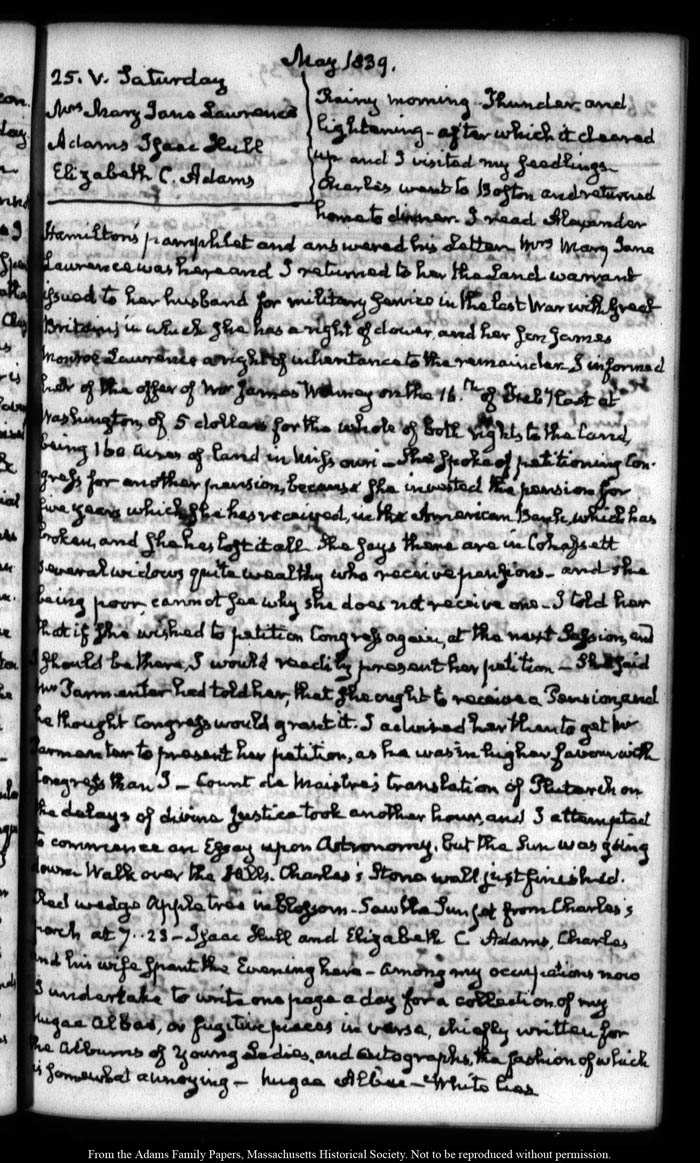 May 1839.
25. V. Saturday
Mrs Mary Jane Lawrence
Adams Isaac Hull
Elizabeth C. Adams
Rainy morning. Thunder and
lightening - after which it cleared
up and I visited my seedlings -
Charles went to Boston and returned
home to dinner. I read Alexander
Hamilton's pamphlet and answered his Letter. Mrs Mary Jane
Lawrence was here and I returned to her the Land warrant
issued to her husband for military service in the last War with Great
Britain; in which she has a right of dower, and her Son James
Monroe Lawrence a right of inheritance to the remainder. I informed
her of the offer of Mr James on the 16.th of Feby last at
Washington, of 5 dollars for the whole of both rights to the Land,
being 160 Acres of land in Missouri - She spoke of petitioning Con-
gress for another pension, because she invested the pension for
five years which she has received, in the American Bank, which has
broken, and she has lost it all. She says there are in Cohassett
several widows quite wealthy who receive pensions - and she
being poor cannot see why she does not receive one - I told her
that if she wished to petition Congress again, at the next Session, and
I should be there, I would readily present her petition - She said
Mr Parmenter had told her, that she ought to receive a Pension, and
he thought Congress would grant it. I advised her then to get Mr
Parmenter to present her petition, as he was in higher favour with
Congress than I - Count de Maistre's translation of Plutarch on
the delays of divine Justice took another hour, and I attempted
to commence an Essay upon Astronomy, but the Sun was going
down. Walk over the Hills. Charles's Stone wall just finished.
Red wedge Apple tree in blossom - Saw the Sun set from Charles's
porch at 7..23 - Isaac Hull and Elizabeth C Adams, Charles
and his wife spent the Evening here - Among my occupations now
I undertake to write one page a day for a collection of my
nugae Albae, or fugitive pieces in verse, chiefly written for
the Albums of Young Ladies, and autographs, the fashion of which
is somewhat annoying - nugae Albae - White lies
From the Adams Family Papers, Massachusetts Historical Society. Not to be reproduced without permission.